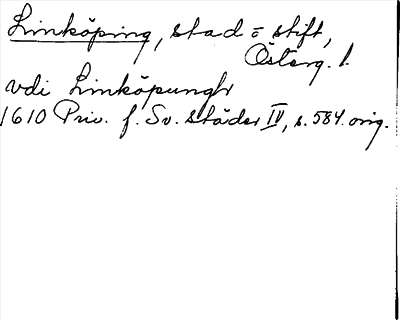 Linköping, stad = stift,
Österg. l.
vdi Linköpungh
1610 Priv. f. Sv. städer IV, s. 584. orig.